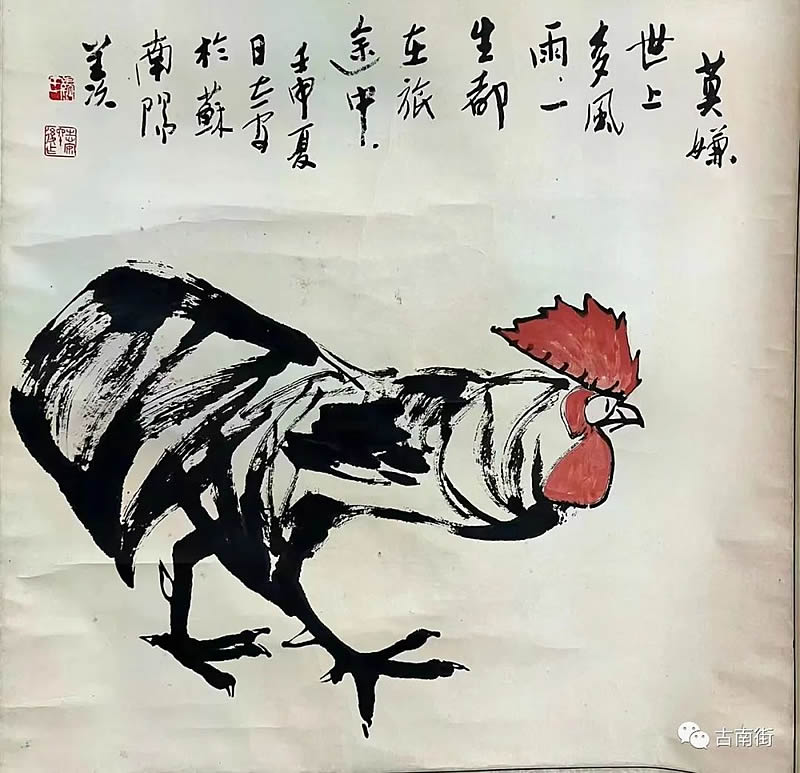 莫嫌
世上
多風
雨，一
生都
在旅
途中．
壬申夏
日
於蘇
南陽
羡次
古南街